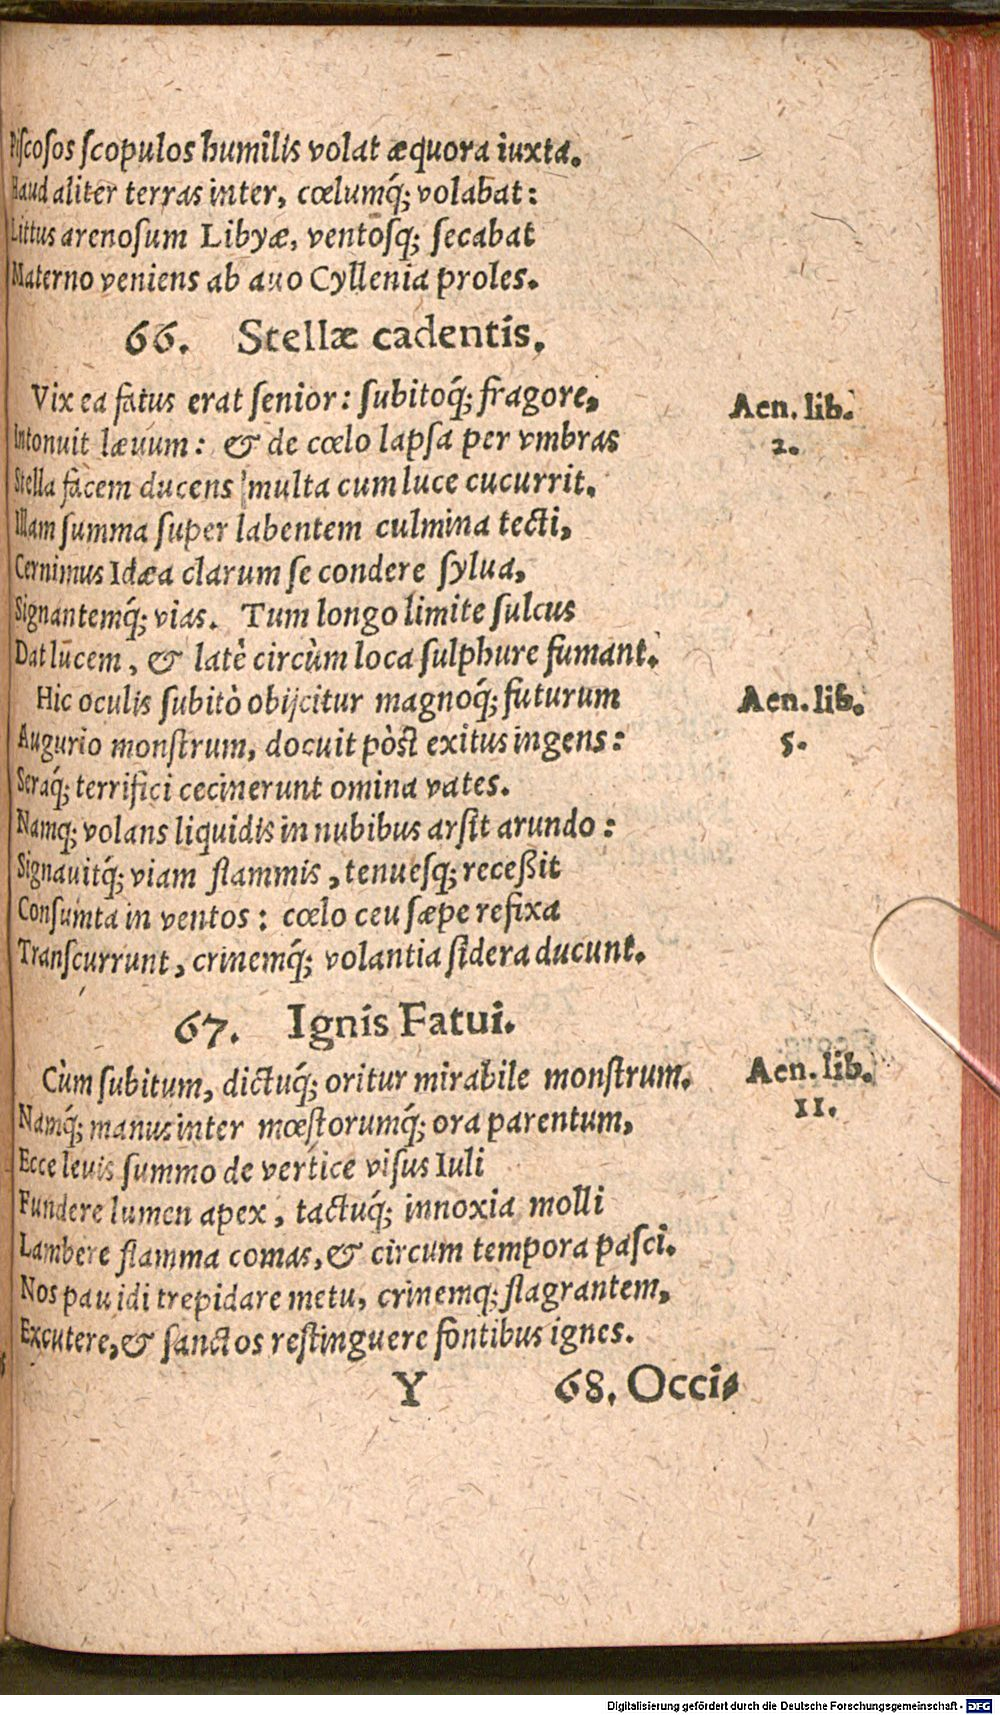 Piſcoſos ſcopulos humilis volat æquora iuxta.
Haud aliter terras inter, cœlumq́; volabat:
Littus arenoſum Libyæ, ventoſq; ſecabat
Materno veniens ab auo Cyllenia proles.
66. Stellæ cadentis.
Vix ea fatus erat ſenior: ſubitoq́; fragore,
Aen. lib.
2.
Intonuit læuum: & de cœlo lapſa per vmbras
Stella facem ducens multa cum luce cucurrit.
Illam ſumma ſuper labentem culmina tecti,
Cernimus Idæa clarum ſe condere ſylua,
Signantemq́; vias. Tum longo limite ſulcus
Dat lucem, & latè circùm loca ſulphure fumant.
Hic oculis ſubitò obijcitur magnoq́; futurum
Aen. lib.
5.
Augurio monſtrum, docuit pòſt exitus ingens:
Seraq́; terrifici cecinerunt omina vates.
Namq; volans liquidis in nubibus arſit arundo:
Signauitq́; viam flammis, tenueſq; receßit
Conſumta in ventos: cœlo ceu ſæpe refixa
Tranſcurrunt, crinemq́; volantia ſidera ducunt.
67. Ignis Fatui.
Cùm ſubitum, dictuq́; oritur mirabile monſtrum.
Aen. lib.
11.
Namq́; manus inter mœſtorumq́; ora parentum,
Ecce leuis ſummo de vertice viſus Iuli
Fundere lumen apex, tactuq́; innoxia molli
Lambere flamma comas, & circum tempora paſci.
Nos pauidi trepidare metu, crinemq; flagrantem,
Excutere, & ſanctos reſtinguere fontibus ignes.
Y 68. Occi-
Digitalisierung gefördert durch die Deutsche Forschungsgemeinschaft - DFG